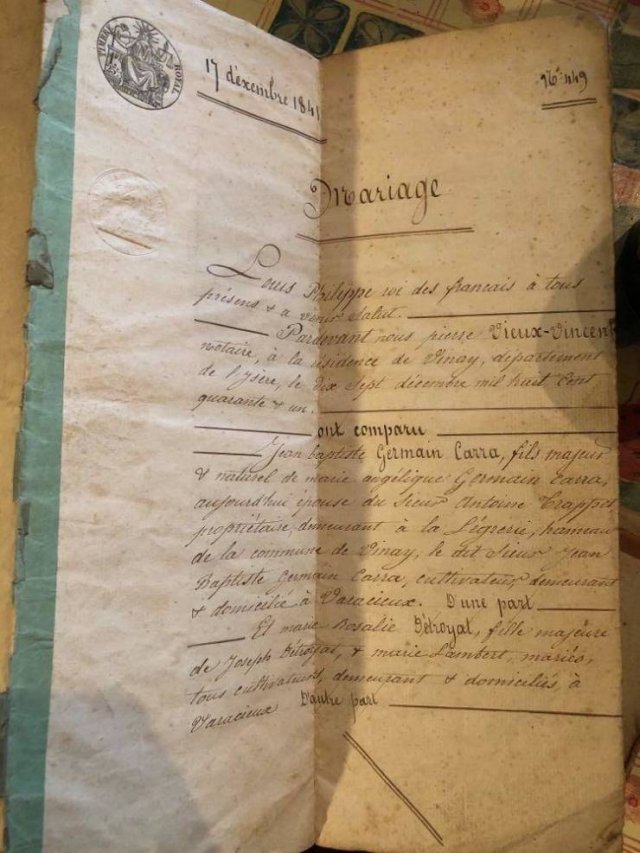 TIMBRE ROYAL
17 décembre 1841
N° 449
Mariage
Louis Philippe roi des français à tous
présens & a venir Salut.
Pardevant nous pierre Vieux-Vincent
notaire, à la résidence de Vinay, département
de l'Isère, le dix Sept décembre mil huit Cent
quarante & un.
ont comparu
Jean baptiste Germain Carra, fils majeur
& naturel de marie angélique Germain Carra,
aujourd'hui épouse du Sieur Antoine Trappet
propriétaire, demeurant à la Légrerie, hameau
de la commune de Vinay, le dit Sieur Jean
Baptiste Germain Carra, cultivateur demeurant
& domicilié à Varacieux. D'une part
Et marie Rosalie Détroyat, fille majeure
de Joseph Détroyat, & marie Lambert, mariés,
tous cultivateurs, demeurant & domiciliés à
Varacieux D'autre part